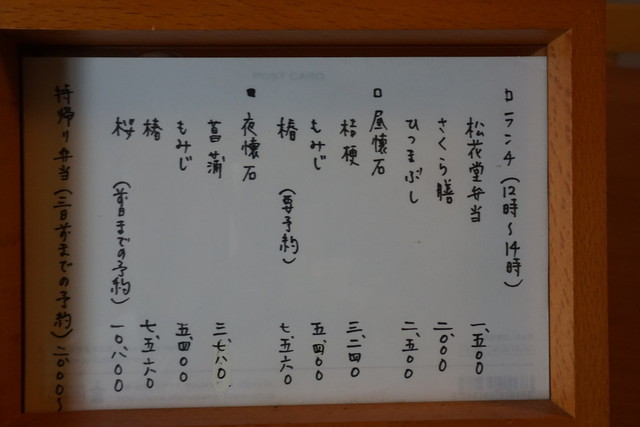 □ランチ(12時〜14時)
松花堂弁当 一、五〇〇
さくら膳 二、〇〇〇
ひつまぶし 二、五〇〇
□昼懐石
桔梗 三、二四〇
もみじ 五、四〇〇
椿(要予約) 七、五六〇
■夜懐石
菖蒲 三、七八〇
もみじ 五、四〇〇
椿 七、五六〇
桜(前日までの予約) 一〇、八〇〇
持帰り弁当(三日前までの予約)二、〇〇〇〜